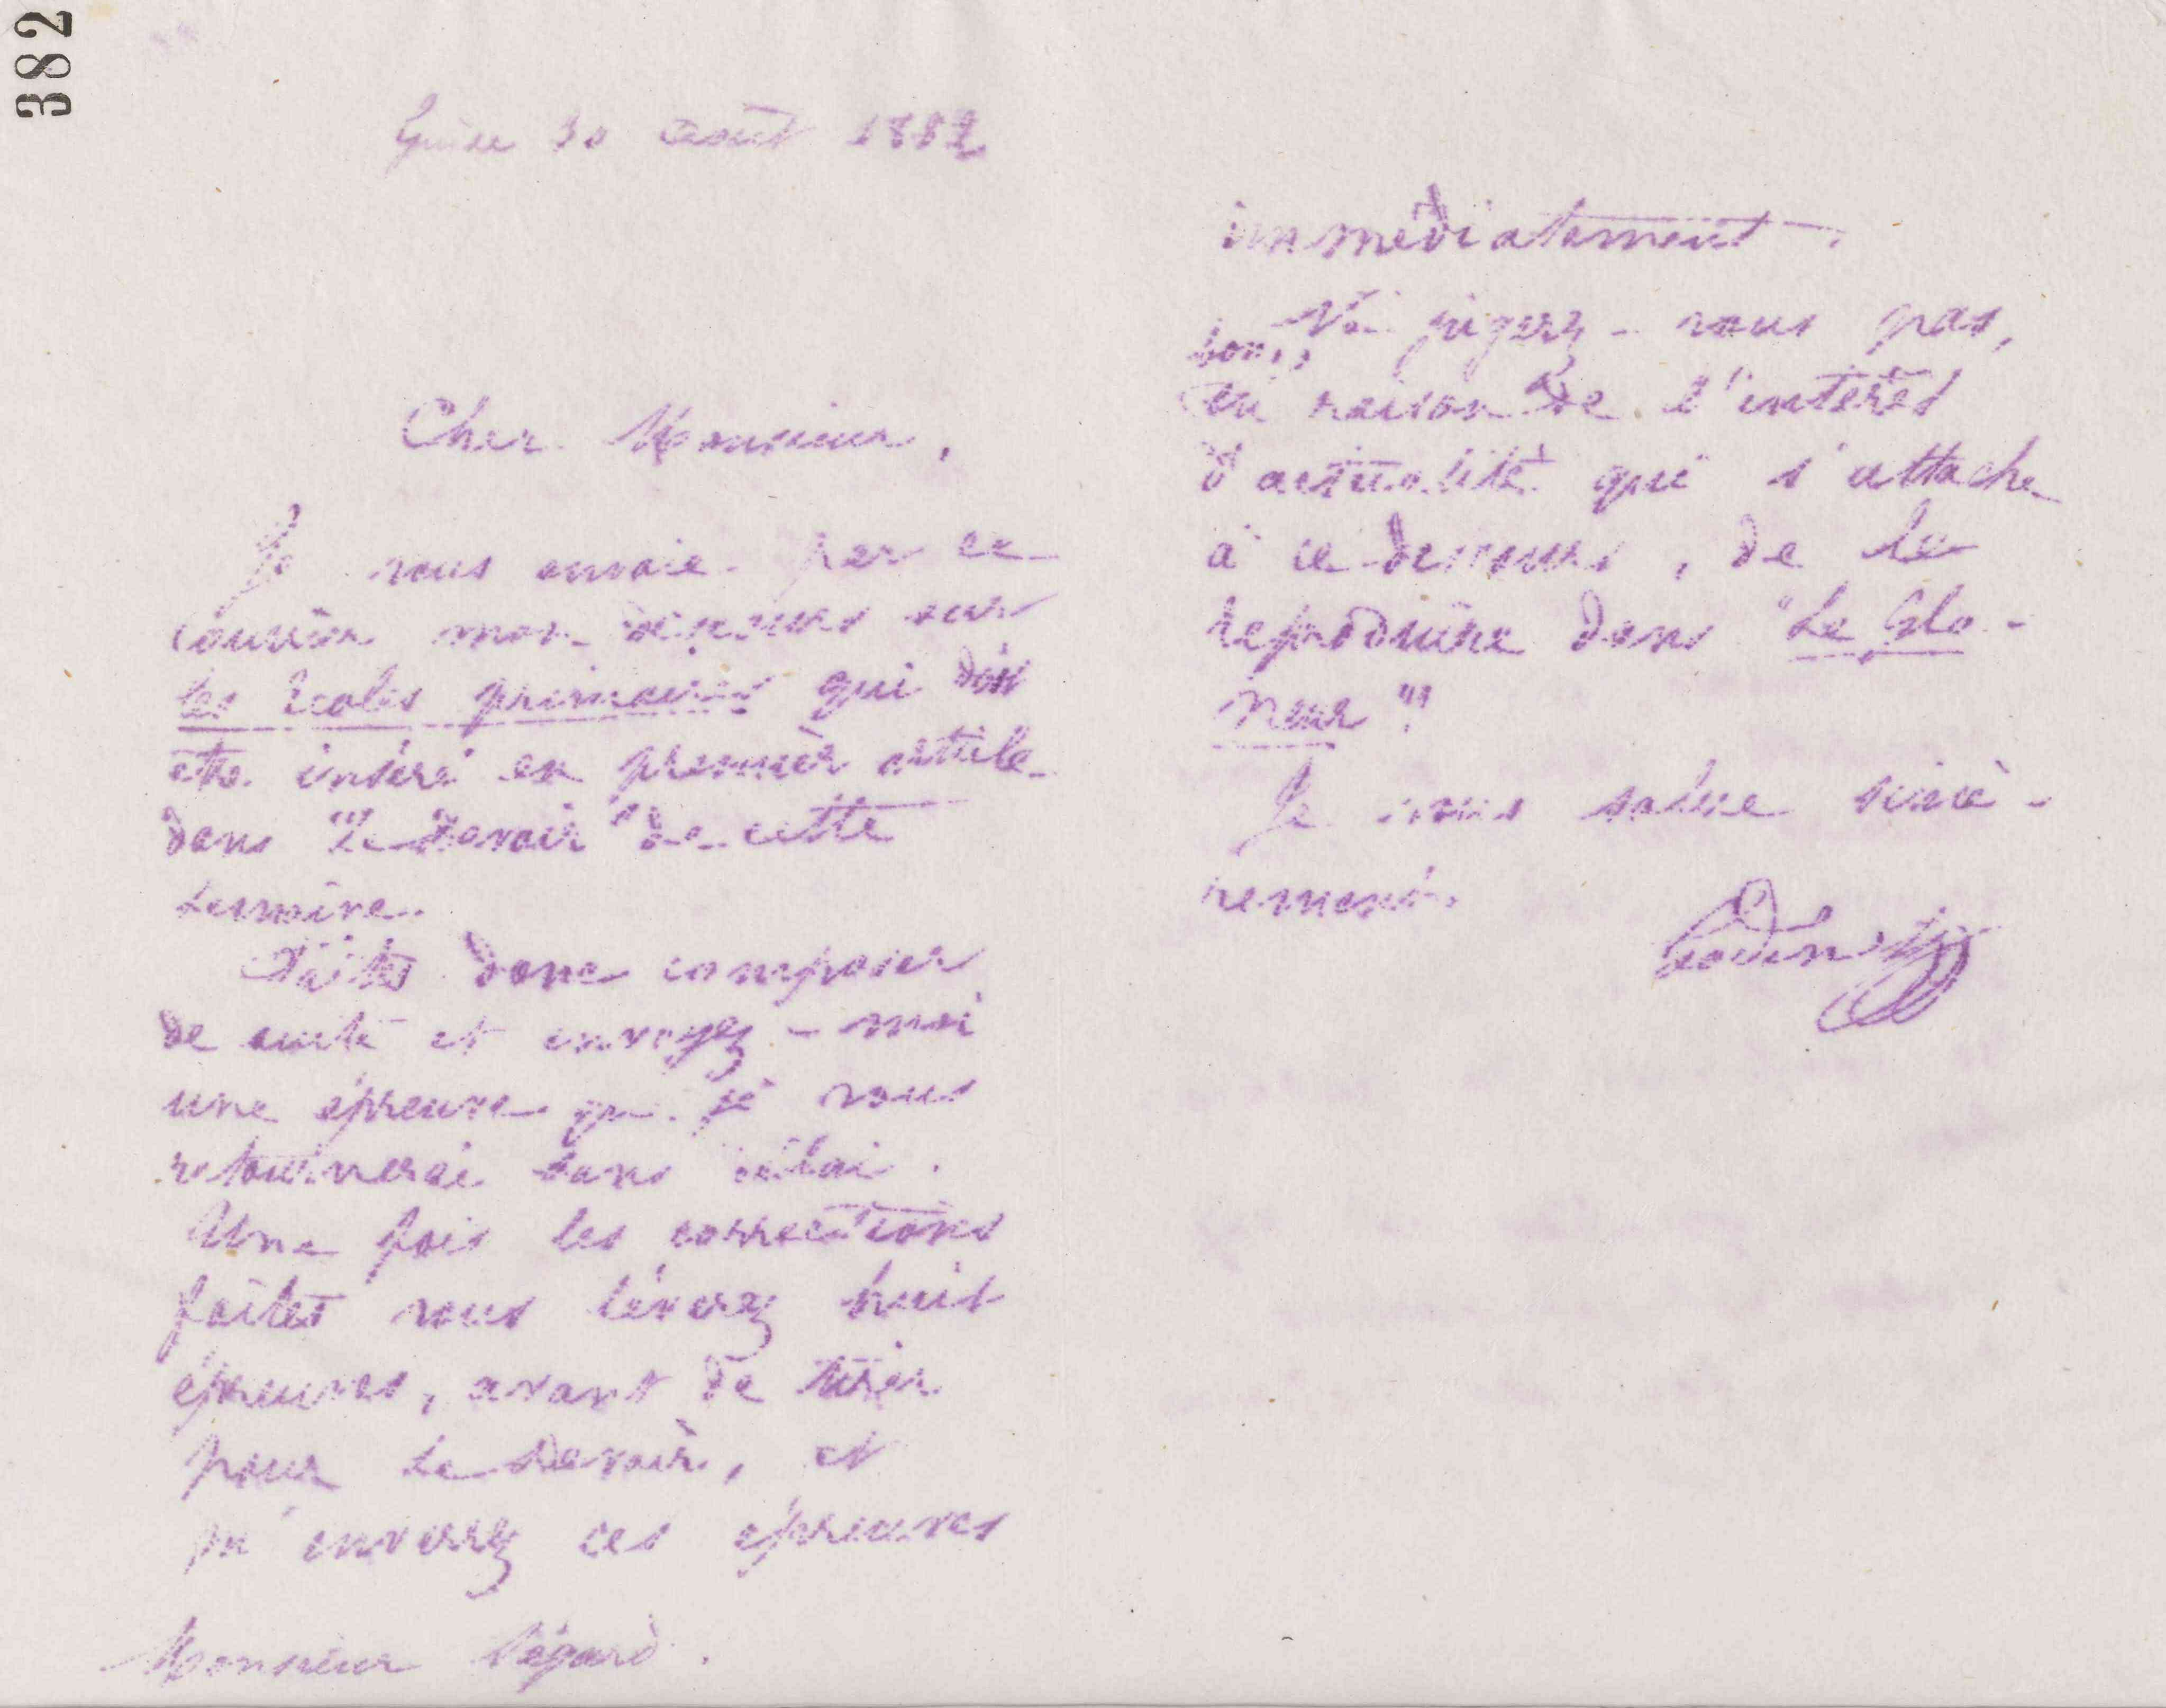 382
Guise 30 août 1882
Cher Monsieur,
Je vous envoie par ce
courrier mon discours sur
les Ecoles primaires qui doit
être inséré en premier article
dans "Le Devoir" de cette
semaine.
Faites donc composer
de suite et envoyez-moi
une épreuve que je vous
retournerai sans délai.
Une fois les corrections
faites vous lèverez huit
épreuves, avant de tirer
pour Le Devoir, et
m'enverrez ces épreuves
Monsieur Ségard.
immédiatement.
Ne jugerez-vous pas,
bon,
en raison de l'intérêt
d'actualité qui s'attache
à ce discours, de le
reproduire dans "Le Gla-
neur"?
Je vous salue sincè-
rement.
Godin